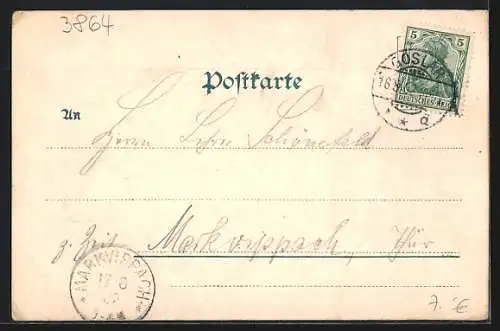 3864
5 5
GOSLAR
16.8
DEUTSCHES REICH
* * d
Postkarte
An
Herrn Lehrer Schönefeld
z. Zeit Markvippach, Thür.
MARKVIPPACH
17 8
7. €